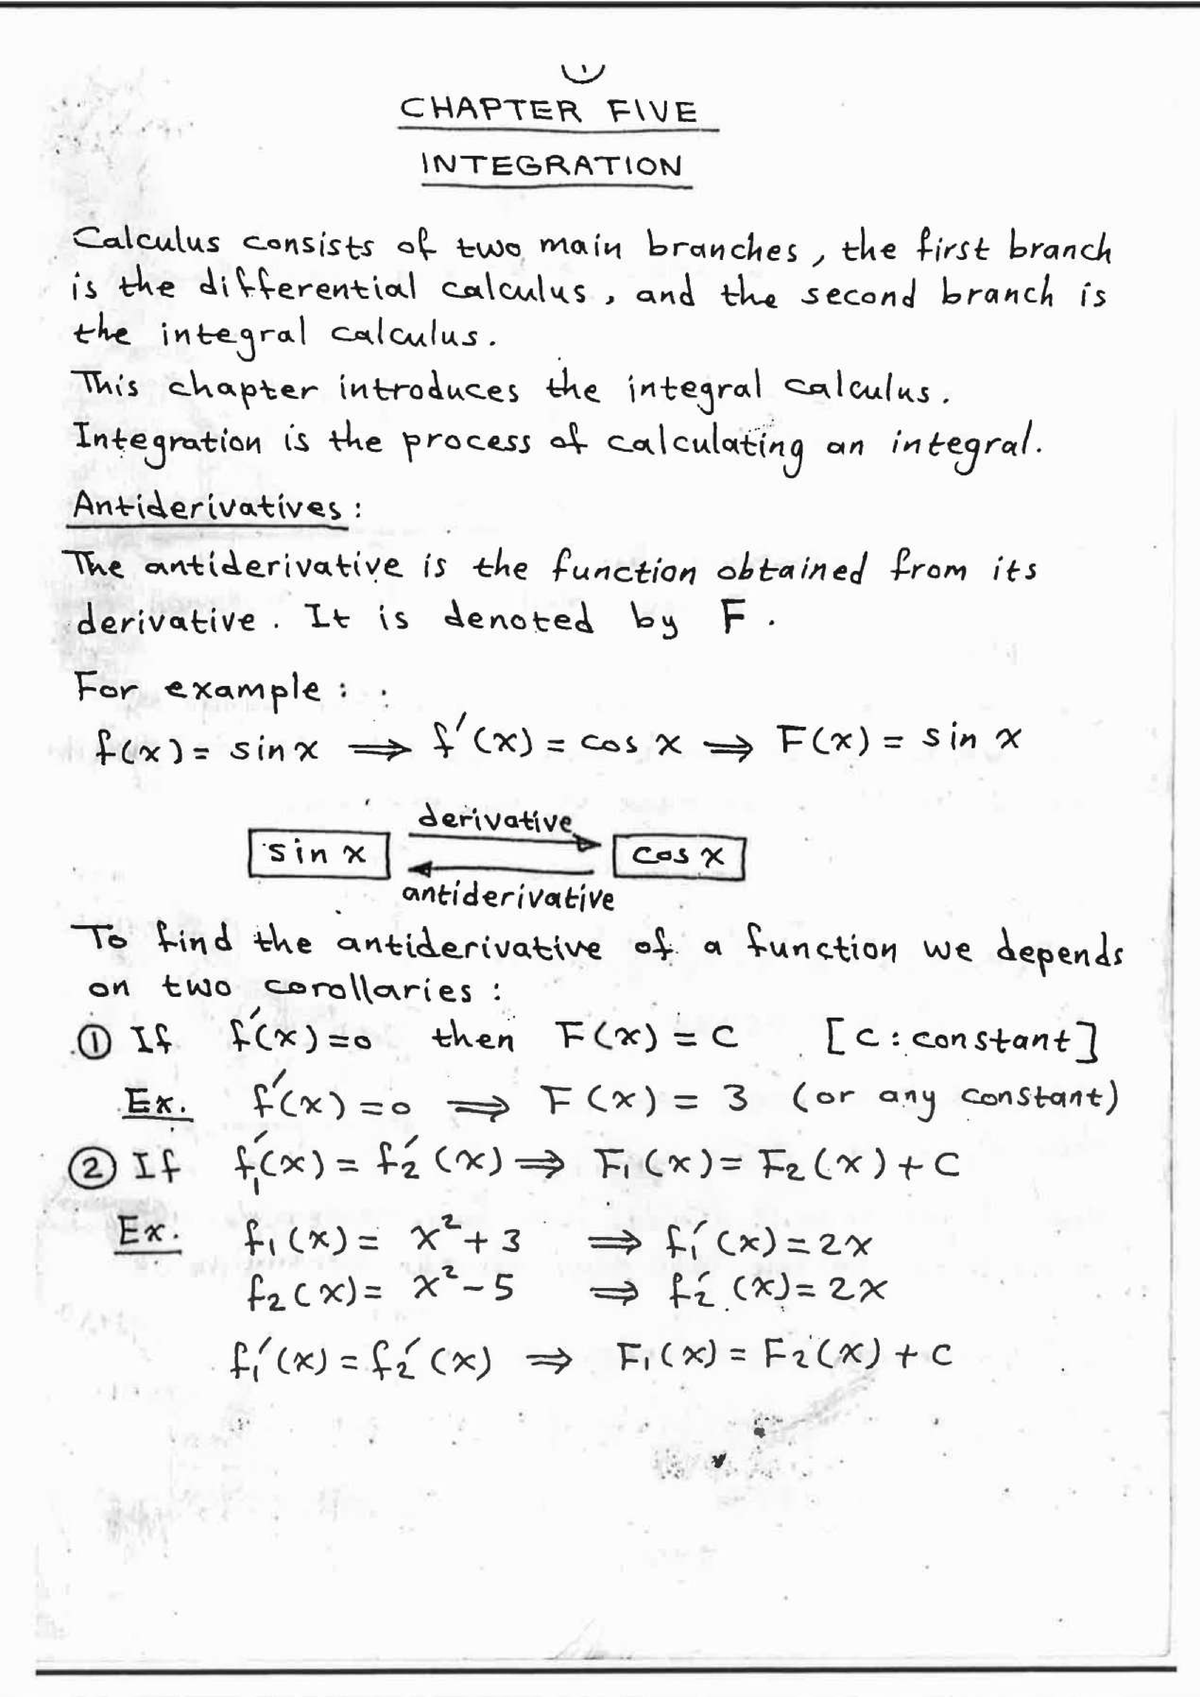 CHAPTER FIVE
INTEGRATION
Calculus consists of two main branches, the first branch
is the differential calculus, and the second branch is
the integral calculus.
This chapter introduces the integral calculus.
Integration is the process of calculating an integral.
Antiderivatives:
The antiderivative is the function obtained from its
derivative. It is denoted by F.
For example:
f(x) = sin x ⟹ f'(x) = cos x ⟹ F(x) = sin x
derivative
sin x cos x
antiderivative
To find the antiderivative of a function we depends
on two corollaries:
① If f'(x) = 0 then F(x) = C [C: constant]
Ex. f'(x) = 0 ⟹ F(x) = 3 (or any constant)
② If f₁'(x) = f₂'(x) ⟹ F₁(x) = F₂(x) + C
Ex. f₁(x) = x² + 3 ⟹ f₁'(x) = 2x
f₂(x) = x² - 5 ⟹ f₂'(x) = 2x
f₁'(x) = f₂'(x) ⟹ F₁(x) = F₂(x) + C